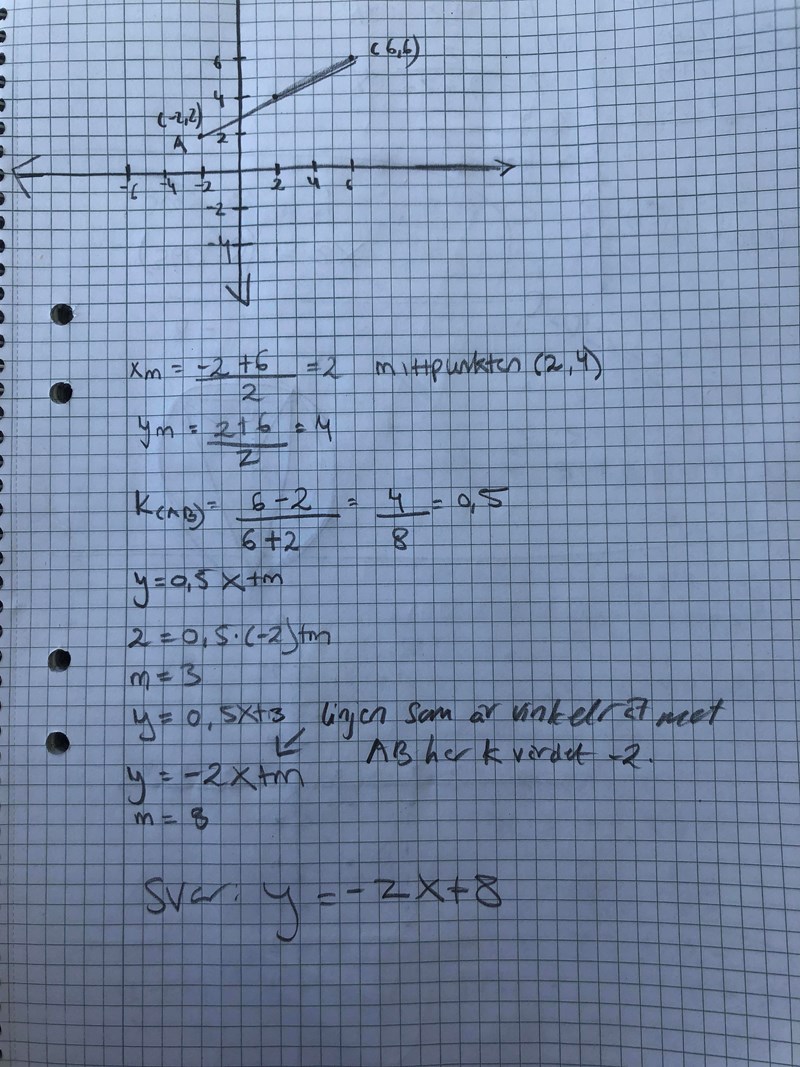 (6,6)
6
4
(-2,2)
A
2
-6 -4 -2 2 4 6
-2
-4
xm = -2+6/2 = 2 mittpunkten (2,4)
ym = 2+6/2 = 4
K(AB) = 6-2/6+2 = 4/8 = 0,5
y=0,5x+m
2=0,5·(-2)+m
m=3
y=0,5x+3 linjen som är vinkelrät mot
AB har k värdet -2.
y=-2x+m
m=8
Svar: y=-2x+8